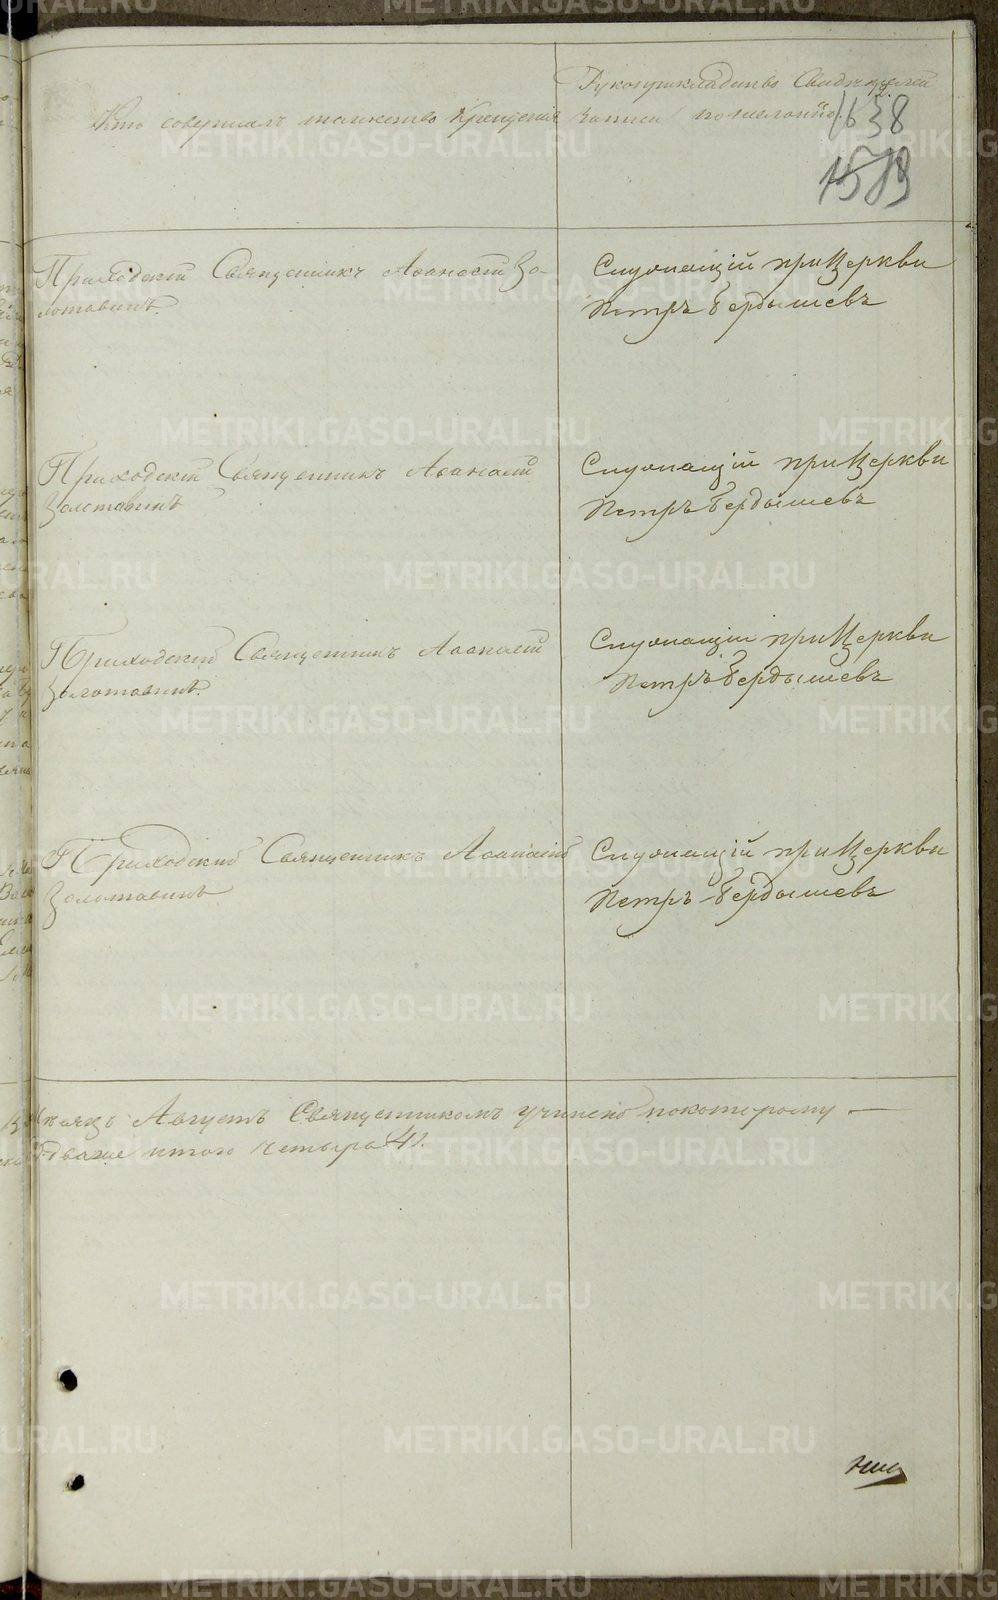 Кто совершалъ таинство Крещенія
Рукоприкладство Свидетелей
записи по желанію.
1638
Приходскій Священникъ Аѳанасій Зо-
лотавинъ.
Служащій при Церкви
Петръ Бердышевъ
Приходскій Священникъ Аѳанасій
Золотавинъ
Служащій при Церкви
Петръ Бердышевъ
Приходскій Священникъ Аѳанасій
Золотавинъ.
Служащій при Церкви
Петръ Бердышевъ
Приходскій Священникъ Аѳанасій
Золотавинъ
Служащій при Церкви
Петръ Бердышевъ
Августъ Священникомъ учинено по которому —
итого Четыре 4).
METRIKI.GASO-URAL.RU